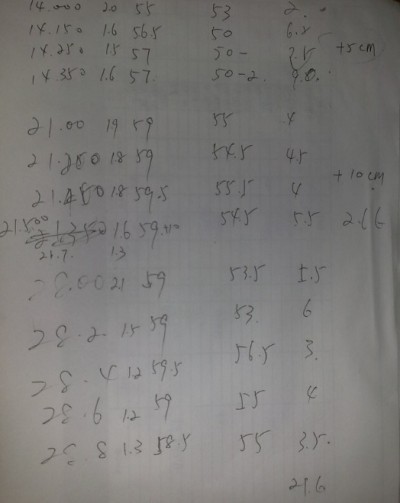 14.000 20 55 53 2.0
14.150 1.6 56.5 50 6.5
14.250 15 57 50- +5cm
14.350 1.6 57. 50-2.
21.00 19 59 55 4
21.250 18 59 54.5 4.5
21.480 18 59.5 55.5 4 +10cm
21.500 16 59 54.5 5.5 2.66
21.7. 1.3
28.00 21 59 53.5 5.5
28.2. 15 59 53. 6
28.4 12 59.5 56.5 3.
28.6 12 59 55 4
28.8 1.3 58.5 55 3.5.
21.6